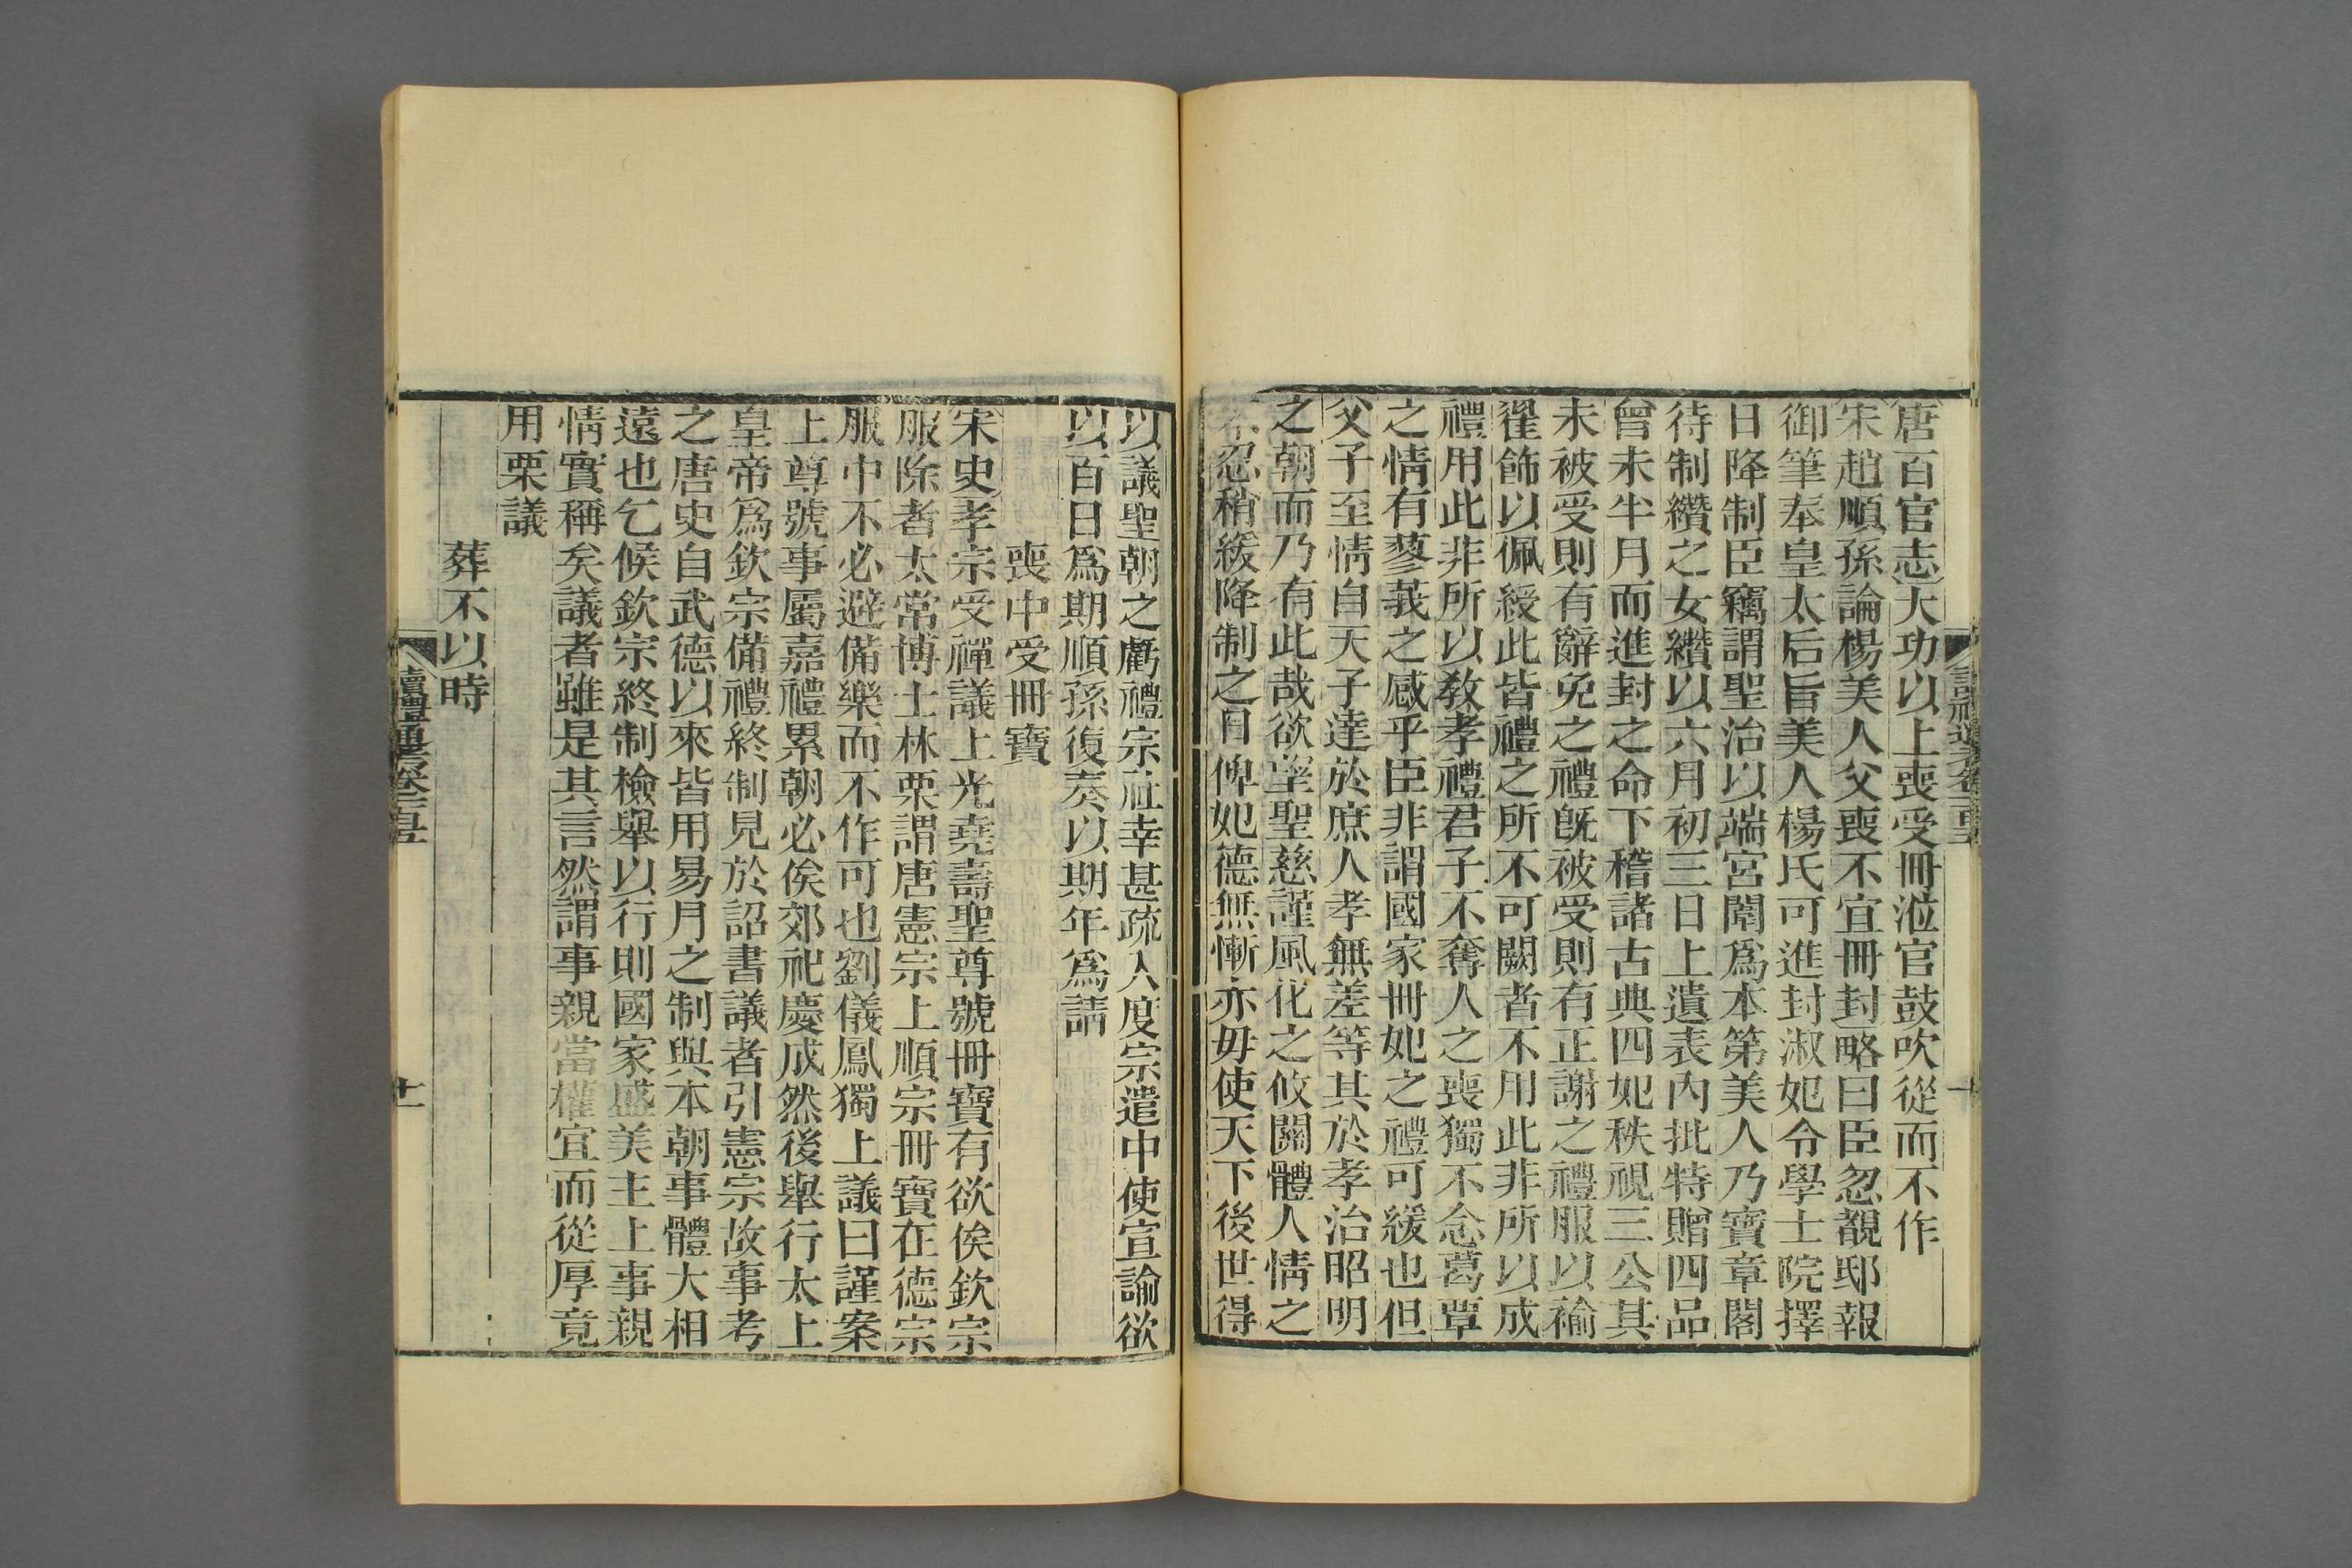 唐百官志大功以上喪受冊涖官鼓吹從而不作
宋趙順孫論楊美人父喪不宜冊封略曰臣忽覩邸報
御筆奉皇太后旨美人楊氏可進封淑妃令學士院擇
日降制臣竊謂聖治以端宮闈爲本第美人乃寶章閣
待制纘之女纘以六月初三日上遺表內批特贈四品
曾未半月而進封之命下稽諸古典四妃秩視三公其
未被受則有辭免之禮旣被受則有正謝之禮服以褕
翟飾以佩綬此皆禮之所不可闕者不用此非所以成
禮用此非所以敎孝禮君子不奪人之喪獨不念葛覃
之情有蓼莪之感乎臣非謂國家冊妃之禮可緩也但
父子至情自天子達於庶人孝無差等其於孝治昭明
之朝而乃有此哉欲望聖慈謹風化之攸關體人情之
不忍稍緩降制之日俾妃德無慚亦毋使天下後世得
以議聖朝之虧禮宗社幸甚疏入度宗遣中使宣諭欲
以百日爲期順孫復奏以期年爲請
喪中受冊寶
宋史孝宗受禪議上光堯壽聖尊號冊寶有欲俟欽宗
服除者太常博士林栗謂唐憲宗上順宗冊寶在德宗
服中不必避備樂而不作可也劉儀鳳獨上議曰謹案
上尊號事屬嘉禮累朝必俟郊祀慶成然後舉行太上
皇帝爲欽宗備禮終制見於詔書議者引憲宗故事考
之唐史自武德以來皆用易月之制與本朝事體大相
遠也乞候欽宗終制檢舉以行則國家盛美主上事親
情實稱矣議者雖是其言然謂事親當權宜而從厚竟
用栗議
葬不以時
讀禮通考卷百五
十一